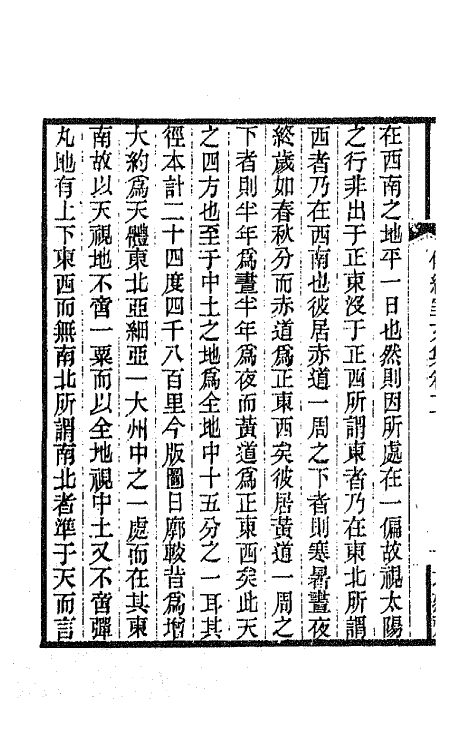 在西南之地平一日也然則因所處在一偏故視太陽
之行非出于正東沒于正西所謂東者乃在東北所謂
西者乃在西南也彼居赤道一周之下者則寒暑晝夜
終歲如春秋分而赤道爲正東西矣彼居黃道一周之
下者則半年爲晝半年爲夜而黃道爲正東西矣此天
之四方也至于中土之地爲全地中十五分之一耳其
徑本計二十四度四千八百里今版圖日廓較昔爲增
大約爲天體東北亞細亞一大州中之一處而在其東
南故以天視地不啻一粟而以全地視中土又不啻彈
丸地有上下東西而無南北所謂南北者準于天而言